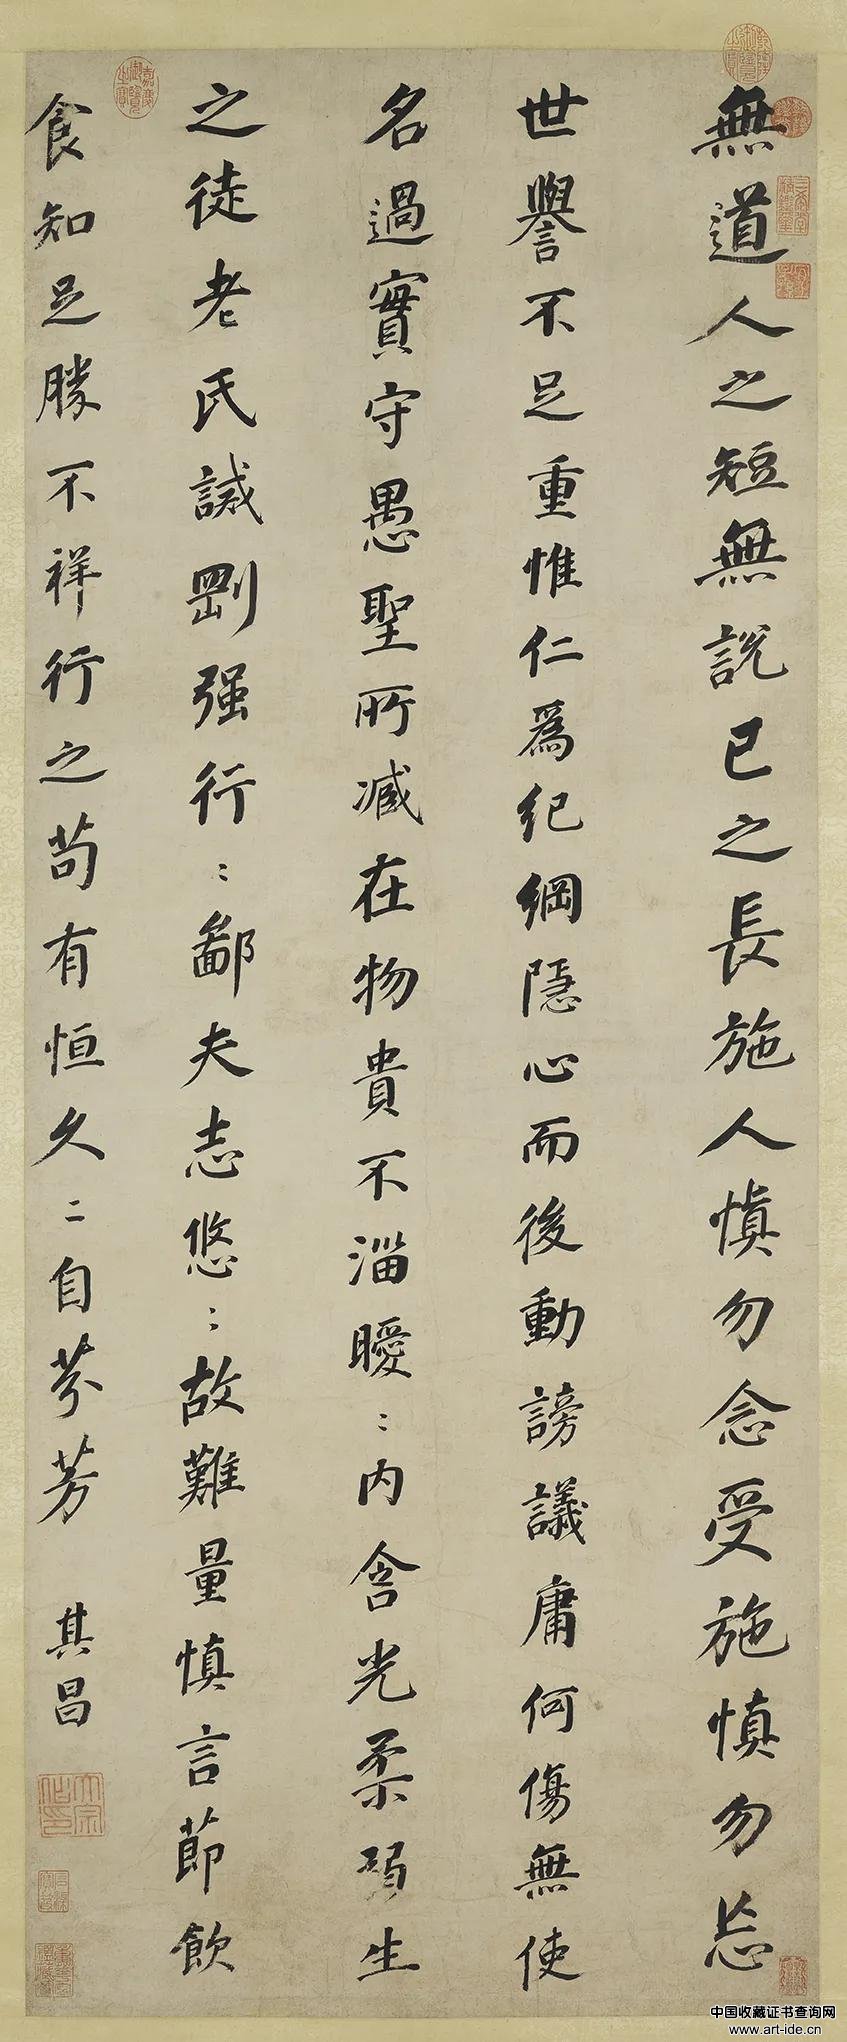 乾隆御覽之寶
三希堂精鑑璽
宜子孫
無道人之短無說己之長施人慎勿念受施慎勿忘
世譽不足重惟仁爲紀綱隱心而後動謗議庸何傷無使
名過實守愚聖所臧在物貴不淄曖〻內含光柔弱生
之徒老氏誡剛强行〻鄙夫志悠〻故難量慎言節飲
嘉慶御覽之寶
食知足勝不祥行之苟有恒久〻自芬芳 其昌
中国收藏证书查询网
www.art-ide.cn